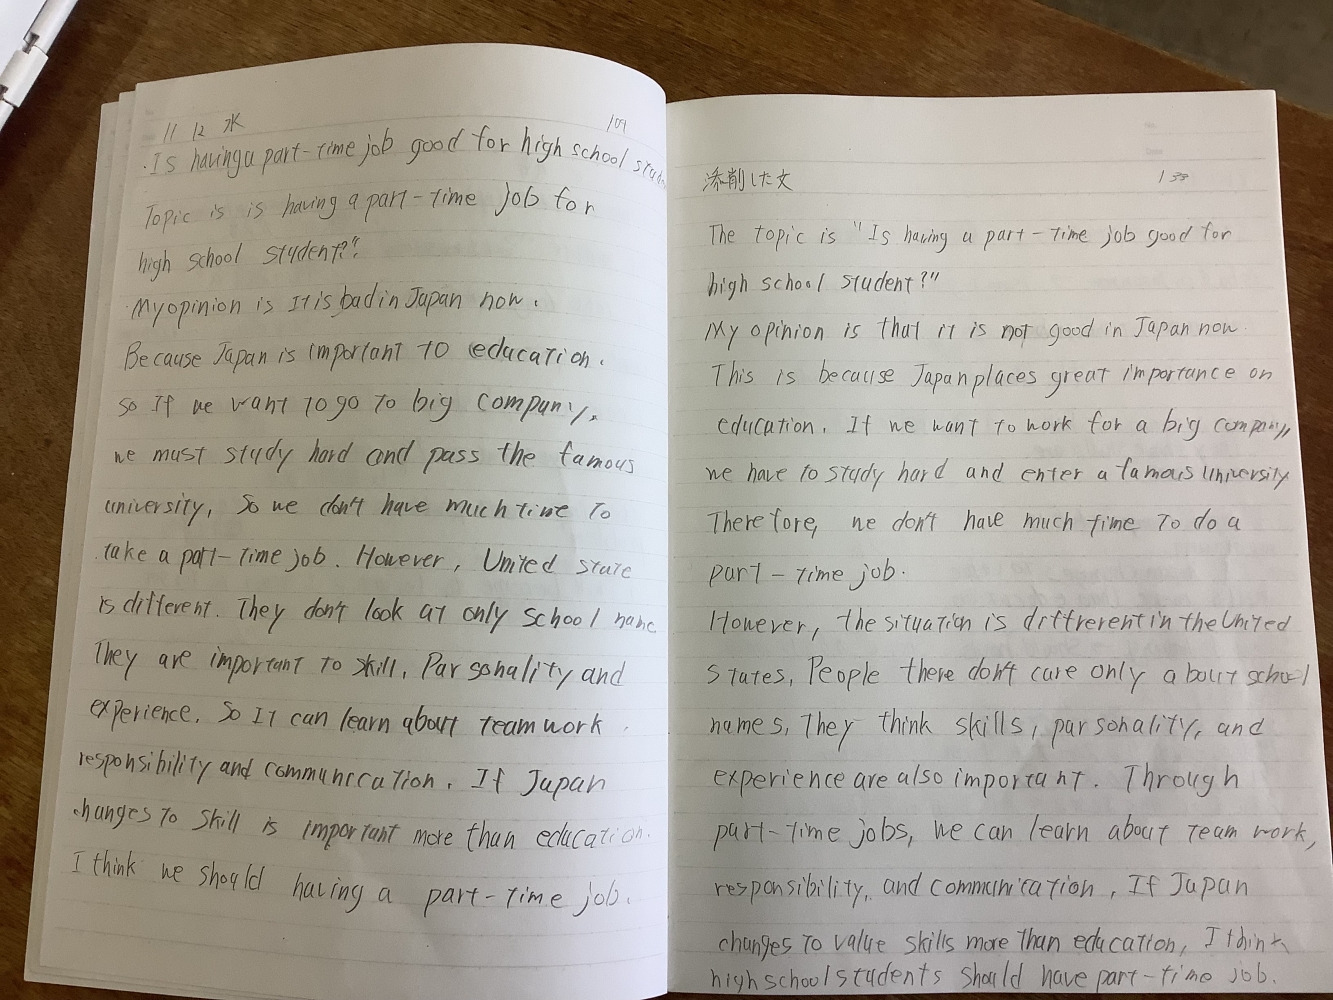 11 12 水 109
Is having a part-time job good for high school
Topic is is having a part-time job for
high school student?"
My opinion is It is bad in Japan now.
Because Japan is important to education.
So If we want to go to big company,
we must study hard and pass the famous
university, So we don't have much time to
take a part-time job. However, United state
is different. They don't look at only school name
They are important to skill, Parsonality and
experience. So It can learn about team work
responsibility and communication. If Japan
changes to skill is important more than education.
I think we should having a part-time job.
添削した文 133
The topic is "Is having a part-time job good for
high school student?"
My opinion is that it is not good in Japan now.
This is because Japan places great importance on
education. If we want to work for a big company,
we have to study hard and enter a famous university
Therefore, we don't have much time to do a
part-time job.
However, the situation is diffrerent in the United
States, People there don't care only about school
names, They think skills, parsonality, and
experience are also important. Through
part-time jobs, we can learn about team work,
responsibility, and communication, If Japan
changes to value skills more than education, I think
high school students should have part-time job.